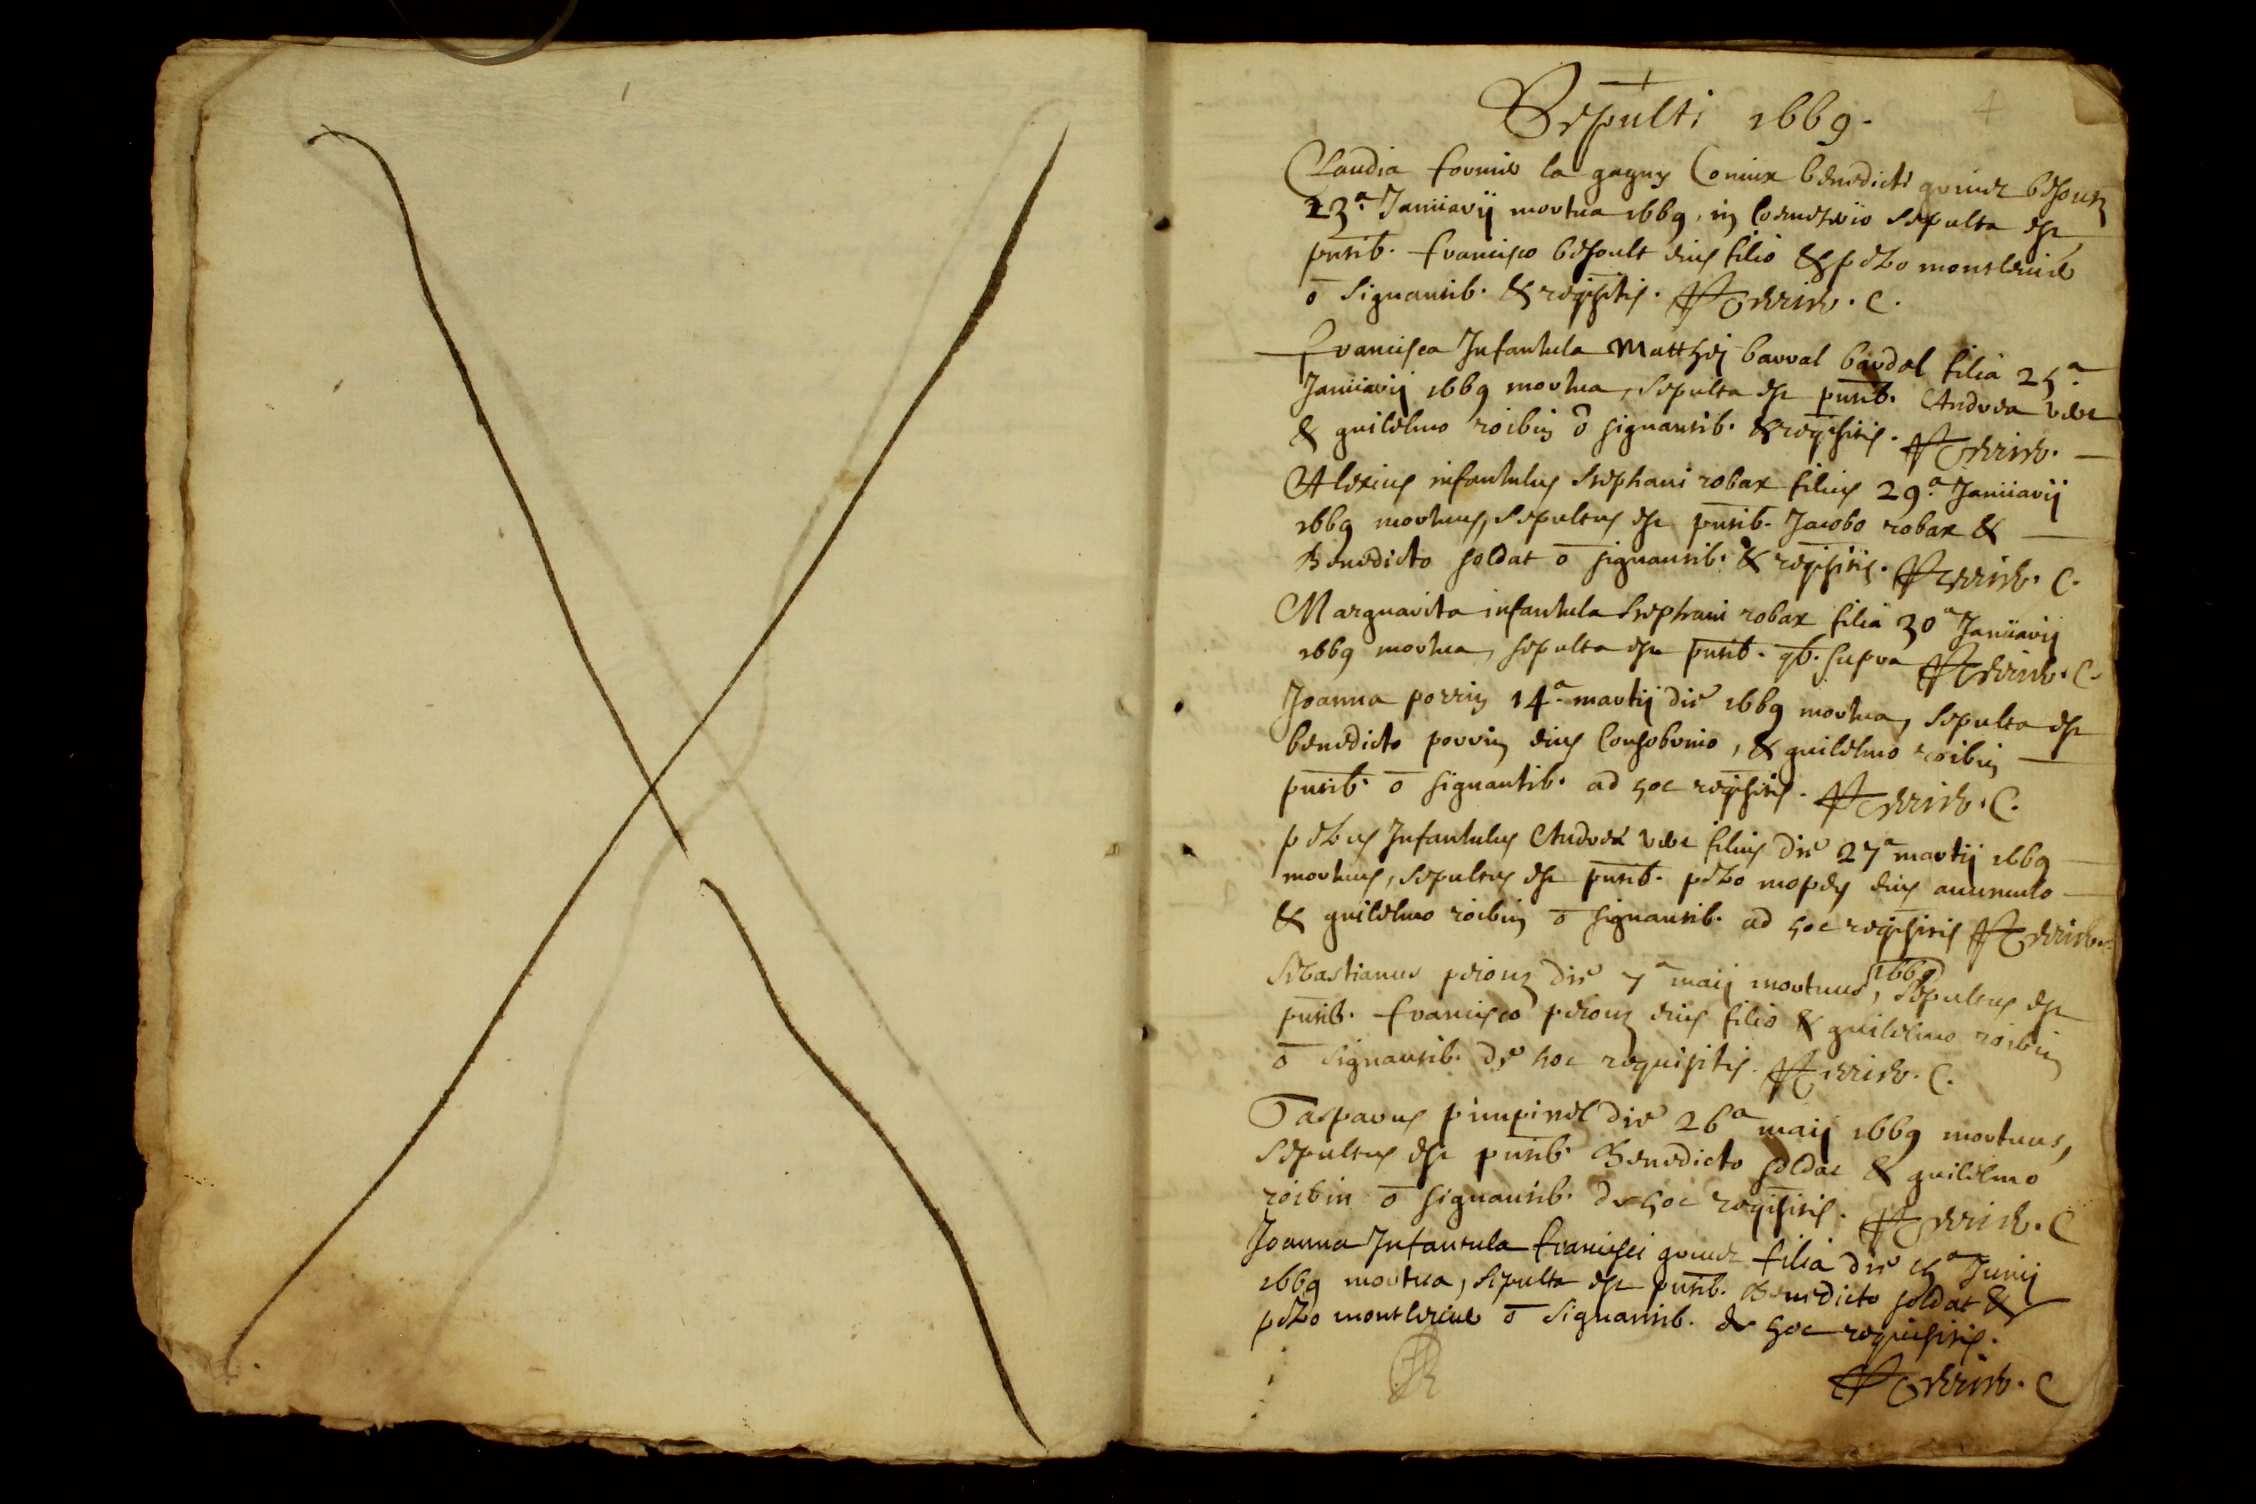 Sepulti 1669.
Claudia la gagny Coniux benedicti
23ª Januarij mortua 1669, in sepulta est
pntib. francisco besoult eius filio & petro
o signantib. & reqisitis.
francisca Infantula Matthei barval bardol filia 25ª
Januarij 1669 mortua, sepulta est pntib. Andrea
& guilelmo roibin o signantib. & reqisitis.
Alexius infantulus Stephani robax filius 29ª Januarij
1669 mortuus, sepultus est pntib. Jacobo robax &
Benedicto soldat o signantib. & reqisitis. C.
Marguarita infantula Stephani robax filia 30ª Januarij
1669 mortua, sepulta est pntib. qb. supra C.
Joanna perrin 14ª martij die 1669 mortua, sepulta est
benedicto perrin eius Consobrino, & guilelmo roibin
pntib. o signantib. ad hoc reqisitis. C.
petrus Infantulus Andreæ filius die 27ª martij 1669
mortuus, sepultus est pntib. petro eius avunculo
& guilelmo roibin o signantib. ad hoc reqisitis
Sebastianus die 7ª maij mortuus, 1669 sepultus est
pntib. francisco eius filio & guilelmo roibin
o signantib. de hoc requisitis. C.
Gasparus pimpinel die 26ª maij 1669 mortuus,
sepultus est pntib. Benedicto soldat & guilelmo
roibin o signantib. de hoc reqisitis. C
Joanna Infantula francisci filia die Junij
1669 mortua, sepulta est pntib. Benedicto soldat &
petro o signantib. de hoc requisitis.
C